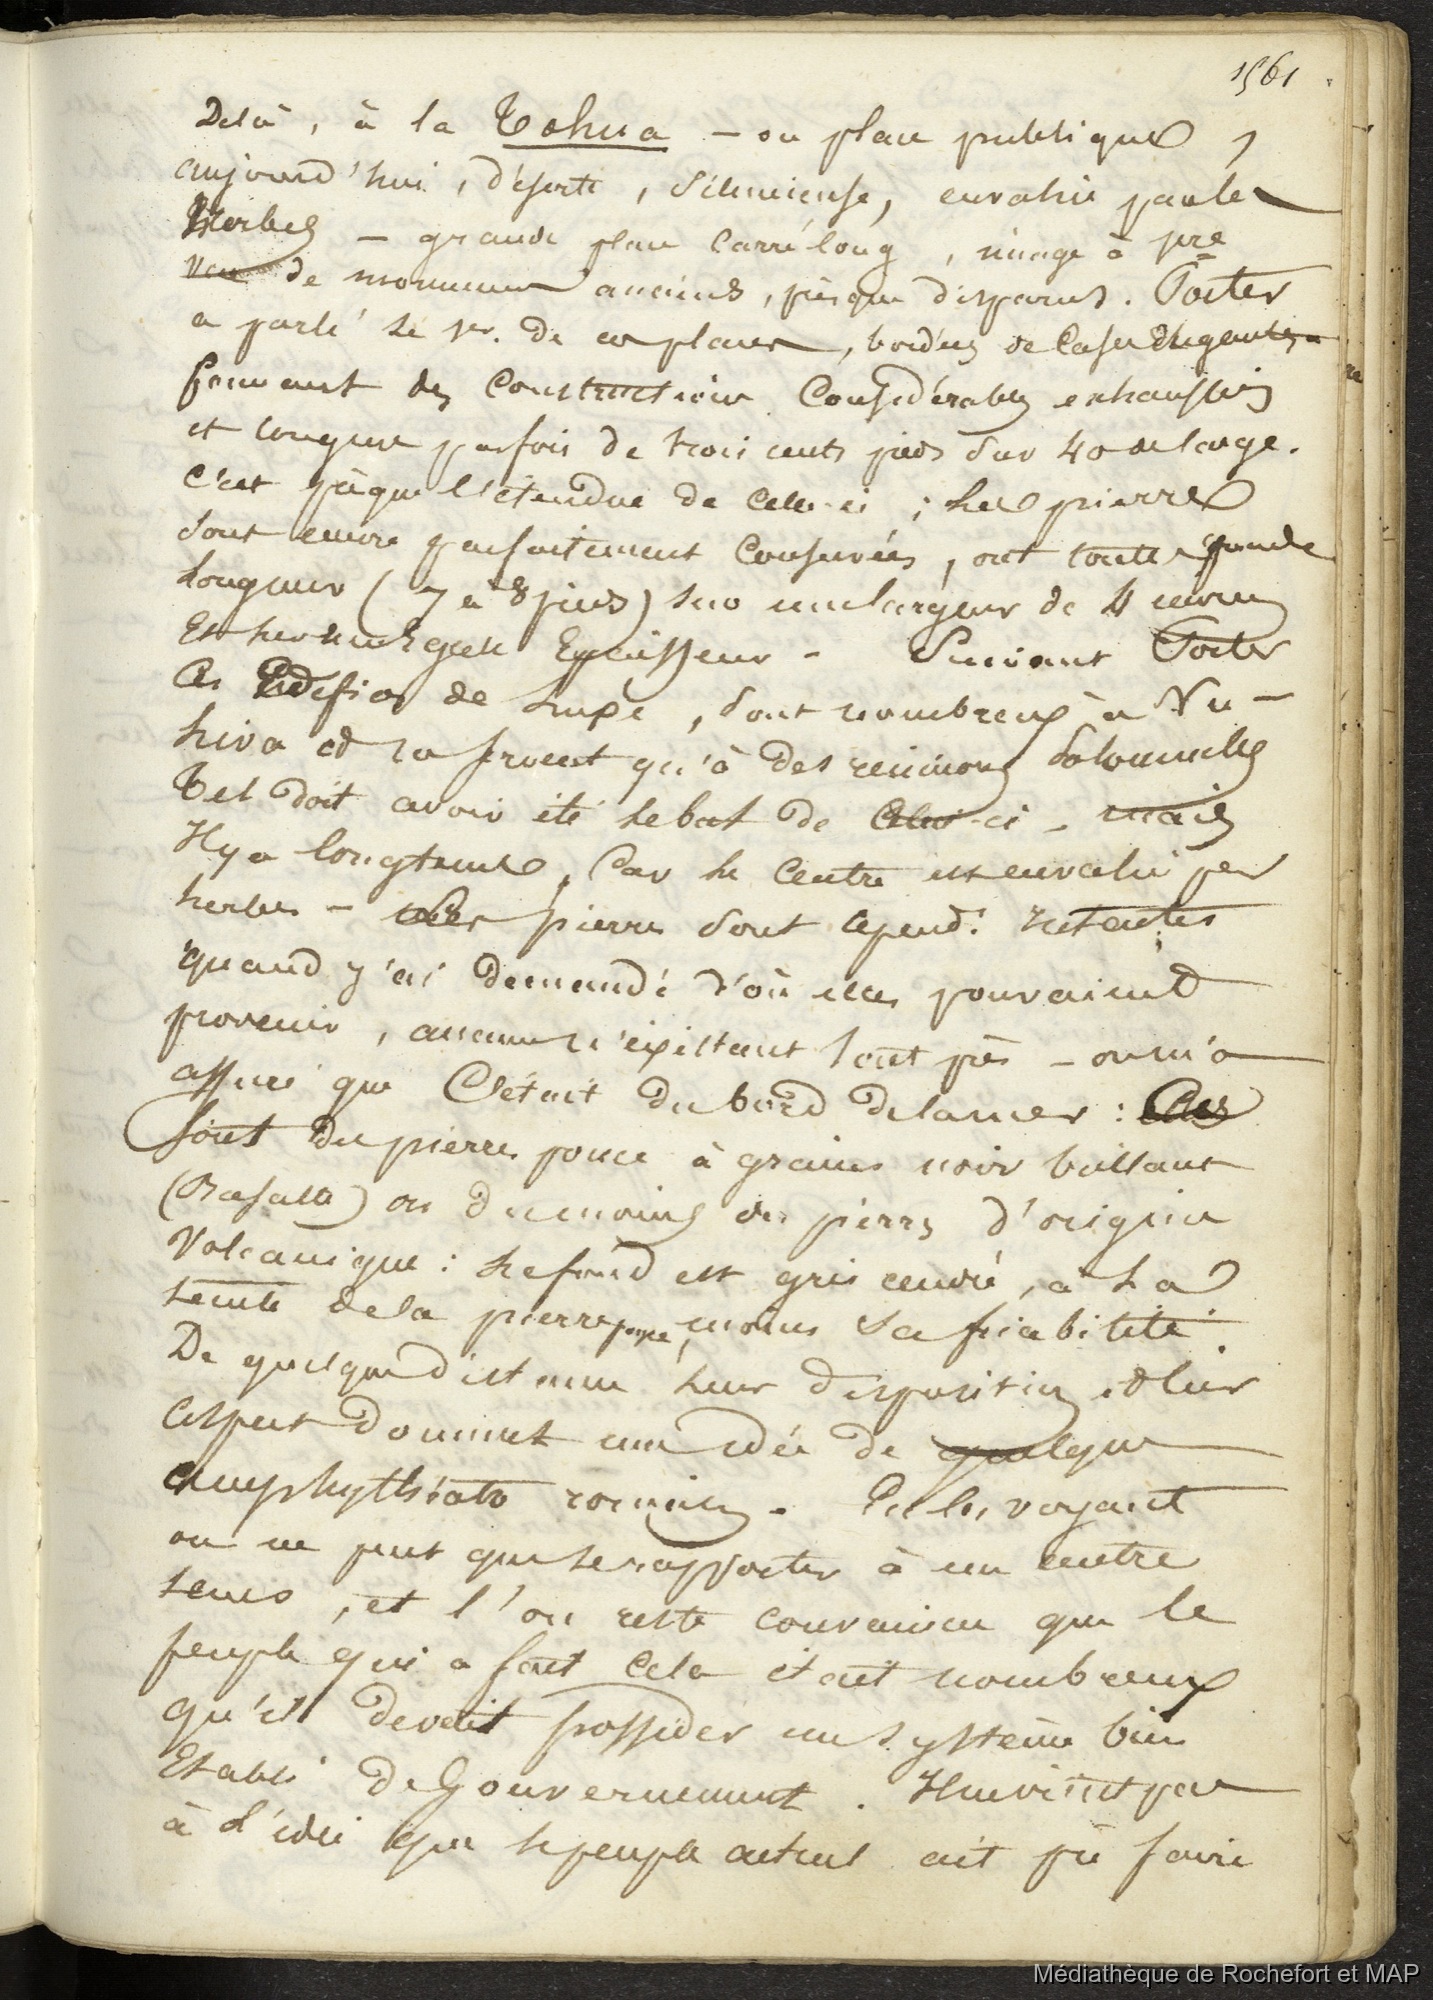 1561
Delà, à la Tohua – ou place publique,
aujourd'hui, déserte, silencieuse, envahie par les
herbes – grande place carré long, image à pre
vue de monumens anciens, presque disparus. Porter
a parlé le 1er. de ces places, bordées de cases élégantes
formant des constructions considérables exhaussées
et longues parfois de trois cents pieds sur 40 de large.
C'est presque l'étendue de celle-ci ; les pierres
sont encore parfaitement conservées, ont toute grande
longueur (7 à 8 pieds) sur une largeur de 4 environ
Et sur une égale Epaisseur – Suivant Porter
Ces Edifices de luxe, sont nombreux à Nu-
hiva et ne servent qu'à des réunions solennelles
Tel doit avoir été le but de celui-ci – mais
Il y a longtems, car le centre est envahi par
herbes – les pierres sont cepend. intactes
quand j'ai demandé d'où elles pouvaient
provenir, aucune n'existant tout près – on m'a
assuré que C'était du bord de la mer : Ces
sont des pierres ponce à grains noir brillant
(Basalte) ou du moins des pierres d'origine
Volcanique : le fond est gris cendré, a la
teinte de la pierre ponce, moins sa friabilité.
De quelque distance leur disposition et leur
aspect donnent une idée de quelque
amphythéatre romain. En les voyant
on ne peut que se rapporter à un autre
tems, et l'on reste convaincu que le
peuple qui a fait cela était nombreux
qu'il devait posséder un système bien
Etabli de Gouvernement. Il ne vient pas
à l'idée que le peuple actuel ait pu faire
Médiathèque de Rochefort et MAP